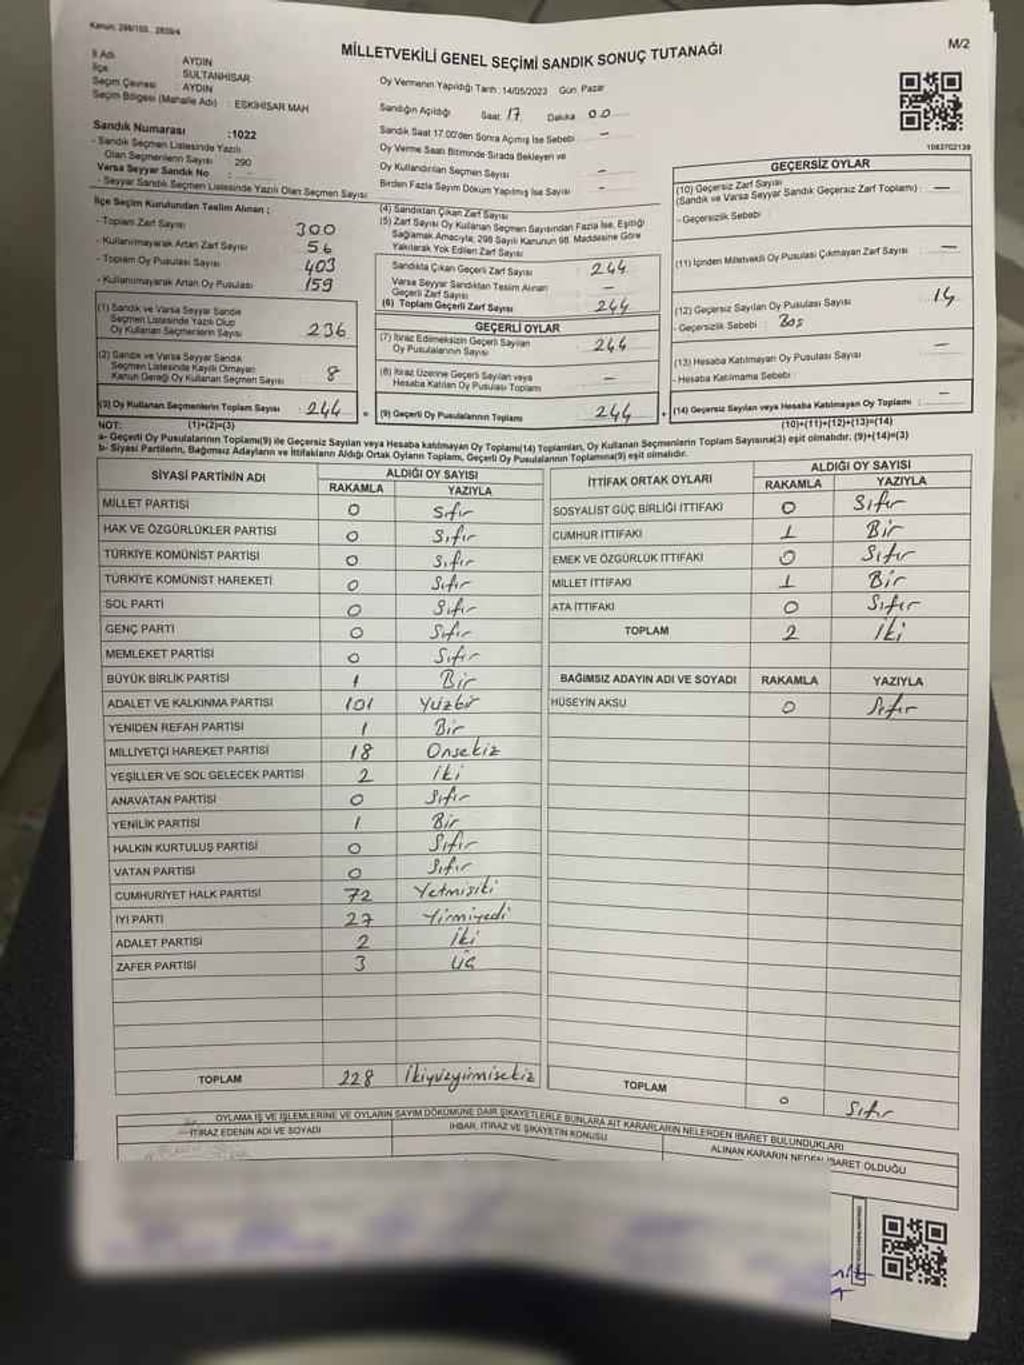 MİLLETVEKİLİ GENEL SEÇİMİ SANDIK SONUÇ TUTANAĞI
M/2
İl Adı : AYDIN
İlçe : SULTANHİSAR
Seçim Çevresi : AYDIN
Seçim Bölgesi (Mahalle Adı) : ESKİHİSAR MAH
Sandık Numarası :1022
- Sandık Seçmen Listesinde Yazılı
Olan Seçmenlerin Sayısı : 290
Varsa Seyyar Sandık No :
- Seyyar Sandık Seçmen Listesinde Yazılı Olan Seçmen Sayısı
Oy Vermenin Yapıldığı Tarih : 14/05/2023 Gün Pazar
Sandığın Açıldığı Saat 17 Dakika 00
Sandık Saat 17.00'den Sonra Açılmış İse Sebebi : -
Oy Verme Saati Bitiminde Sırada Bekleyen ve
Oy Kullandırılan Seçmen Sayısı -
Birden Fazla Sayım Döküm Yapılmış İse Sayısı -
1083702139
İlçe Seçim Kurulundan Teslim Alınan :
- Toplam Zarf Sayısı 300
- Kullanılmayarak Artan Zarf Sayısı 56
- Toplam Oy Pusulası Sayısı 403
- Kullanılmayarak Artan Oy Pusulası 159
(1) Sandık ve Varsa Seyyar Sandık
Seçmen Listesinde Yazılı Olup
Oy Kullanan Seçmenlerin Sayısı : 236
(2) Sandık ve Varsa Seyyar Sandık
Seçmen Listesinde Kayıtlı Olmayan
Kanun Gereği Oy Kullanan Seçmen Sayısı 8
(3) Oy Kullanan Seçmenlerin Toplam Sayısı : 244
(4) Sandıktan Çıkan Zarf Sayısı
(5) Zarf Sayısı Oy Kullanan Seçmen Sayısından Fazla İse, Eşitliği
Sağlamak Amacıyla; 298 Sayılı Kanunun 98. Maddesine Göre
Yakılarak Yok Edilen Zarf Sayısı
Sandıkta Çıkan Geçerli Zarf Sayısı 244
Varsa Seyyar Sandıktan Teslim Alınan
Geçerli Zarf Sayısı -
(6) Toplam Geçerli Zarf Sayısı 244
GEÇERLİ OYLAR
(7) İtiraz Edilmeksizin Geçerli Sayılan
Oy Pusulalarının Sayısı 244
(8) İtiraz Üzerine Geçerli Sayılan veya
Hesaba Katılan Oy Pusulası Toplamı -
= (9) Geçerli Oy Pusulalarının Toplamı 244
GEÇERSİZ OYLAR
(10) Geçersiz Zarf Sayısı
(Sandık ve Varsa Seyyar Sandık Geçersiz Zarf Toplamı) : -
- Geçersizlik Sebebi :
(11) İçinden Milletvekili Oy Pusulası Çıkmayan Zarf Sayısı -
(12) Geçersiz Sayılan Oy Pusulası Sayısı 14
- Geçersizlik Sebebi : Boş
(13) Hesaba Katılmayan Oy Pusulası Sayısı -
- Hesaba Katılmama Sebebi :
+ (14) Geçersiz Sayılan veya Hesaba Katılmayan Oy Toplamı : -
NOT: (1)+(2)=(3) (10)+(11)+(12)+(13)=(14)
a- Geçerli Oy Pusulalarının Toplamı(9) ile Geçersiz Sayılan veya Hesaba katılmayan Oy Toplamı(14) Toplamları, Oy Kullanan Seçmenlerin Toplam Sayısına(3) eşit olmalıdır. (9)+(14)=(3)
b- Siyasi Partilerin, Bağımsız Adayların ve İttifakların Aldığı Ortak Oyların Toplamı, Geçerli Oy Pusulalarının Toplamına(9) eşit olmalıdır.
SİYASİ PARTİNİN ADI ALDIĞI OY SAYISI
RAKAMLA YAZIYLA
MİLLET PARTİSİ 0 Sıfır
HAK VE ÖZGÜRLÜKLER PARTİSİ 0 Sıfır
TÜRKİYE KOMÜNİST PARTİSİ 0 Sıfır
TÜRKİYE KOMÜNİST HAREKETİ 0 Sıfır
SOL PARTİ 0 Sıfır
GENÇ PARTİ 0 Sıfır
MEMLEKET PARTİSİ 0 Sıfır
BÜYÜK BİRLİK PARTİSİ 1 Bir
ADALET VE KALKINMA PARTİSİ 101 Yüzbir
YENİDEN REFAH PARTİSİ 1 Bir
MİLLİYETÇİ HAREKET PARTİSİ 18 Onsekiz
YEŞİLLER VE SOL GELECEK PARTİSİ 2 İki
ANAVATAN PARTİSİ 0 Sıfır
YENİLİK PARTİSİ 1 Bir
HALKIN KURTULUŞ PARTİSİ 0 Sıfır
VATAN PARTİSİ 0 Sıfır
CUMHURİYET HALK PARTİSİ 72 Yetmişiki
İYİ PARTİ 27 Yirmiyedi
ADALET PARTİSİ 2 İki
ZAFER PARTİSİ 3 Üç
TOPLAM 228 İkiyüzyirmisekiz
İTTİFAK ORTAK OYLARI ALDIĞI OY SAYISI
RAKAMLA YAZIYLA
SOSYALİST GÜÇ BİRLİĞİ İTTİFAKI 0 Sıfır
CUMHUR İTTİFAKI 1 Bir
EMEK VE ÖZGÜRLÜK İTTİFAKI 0 Sıfır
MİLLET İTTİFAKI 1 Bir
ATA İTTİFAKI 0 Sıfır
TOPLAM 2 İki
BAĞIMSIZ ADAYIN ADI VE SOYADI RAKAMLA YAZIYLA
HÜSEYİN AKSU 0 Sıfır
TOPLAM 0 Sıfır
OYLAMA İŞ VE İŞLEMLERİNE VE OYLARIN SAYIM DÖKÜMÜNE DAİR ŞİKAYETLERLE BUNLARA AİT KARARLARIN NELERDEN İBARET BULUNDUKLARI
İTİRAZ EDENİN ADI VE SOYADI
İHBAR, İTİRAZ VE ŞİKAYETİN KONUSU
ALINAN KARARIN NEDEN İBARET OLDUĞU